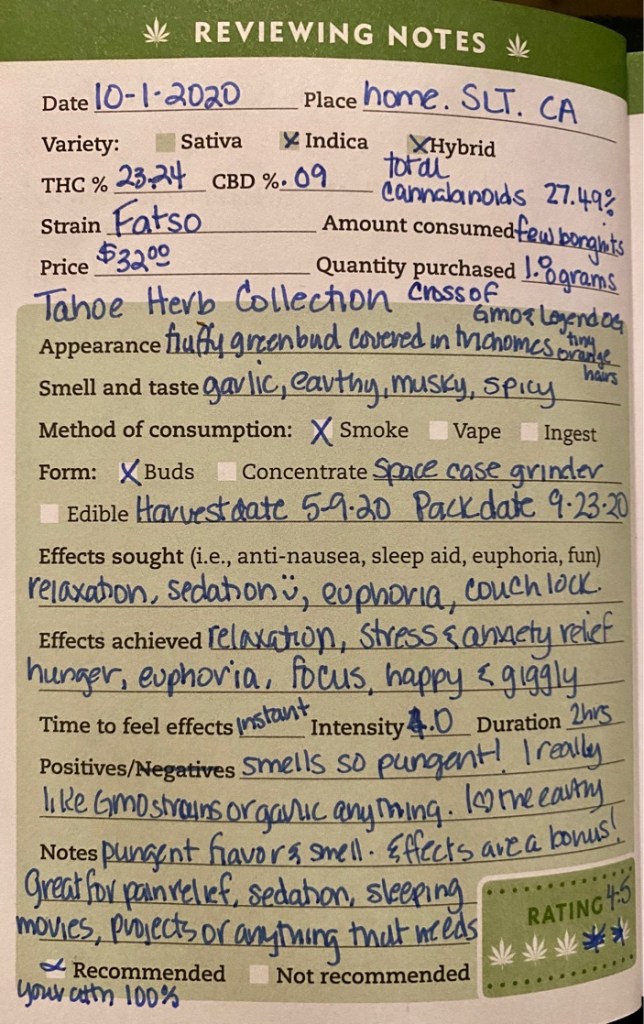 REVIEWING NOTES
Date 10-1-2020 Place home. SLT. CA
Variety: Sativa X Indica X Hybrid
THC % 23.24 CBD % .09 total cannabanoids 27.49%
Strain Fatso Amount consumed few bonghits
Price $32.00 Quantity purchased 1.8 grams
Tahoe Herb Collection cross of GMO & Legend OG
Appearance fluffy green bud covered in trichomes tiny orange hairs
Smell and taste garlic, earthy, musky, spicy
Method of consumption: X Smoke Vape Ingest
Form: X Buds Concentrate Space case grinder
Edible Harvest date 5-9-20 Pack date 9-23-20
Effects sought (i.e., anti-nausea, sleep aid, euphoria, fun)
relaxation, sedation, euphoria, couch lock.
Effects achieved relaxation, stress & anxiety relief
hunger, euphoria, focus, happy & giggly
Time to feel effects instant Intensity 4.0 Duration 2hrs
Positives/Negatives smells so pungent! I really
like GMO strains or garlic anything. I ♡ the earthy
Notes pungent flavor & smell. Effects are a bonus!
Great for pain relief, sedation, sleeping
movies, projects or anything that needs
RATING 4.5
X Recommended Not recommended
your attn 100%